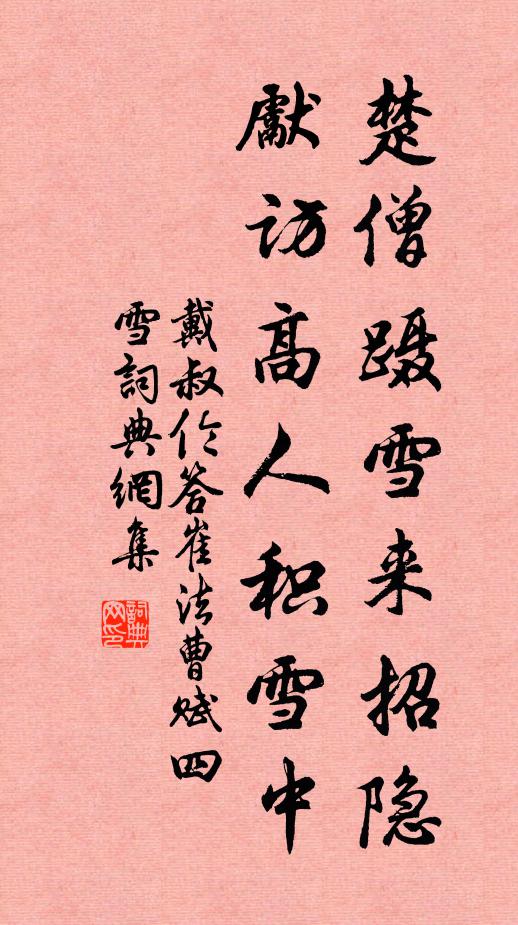 楚僧蹑雪来招隐
獻访高人积雪中
戴叔伦答崔法曹赋四
雪詞典網集
詞典网印